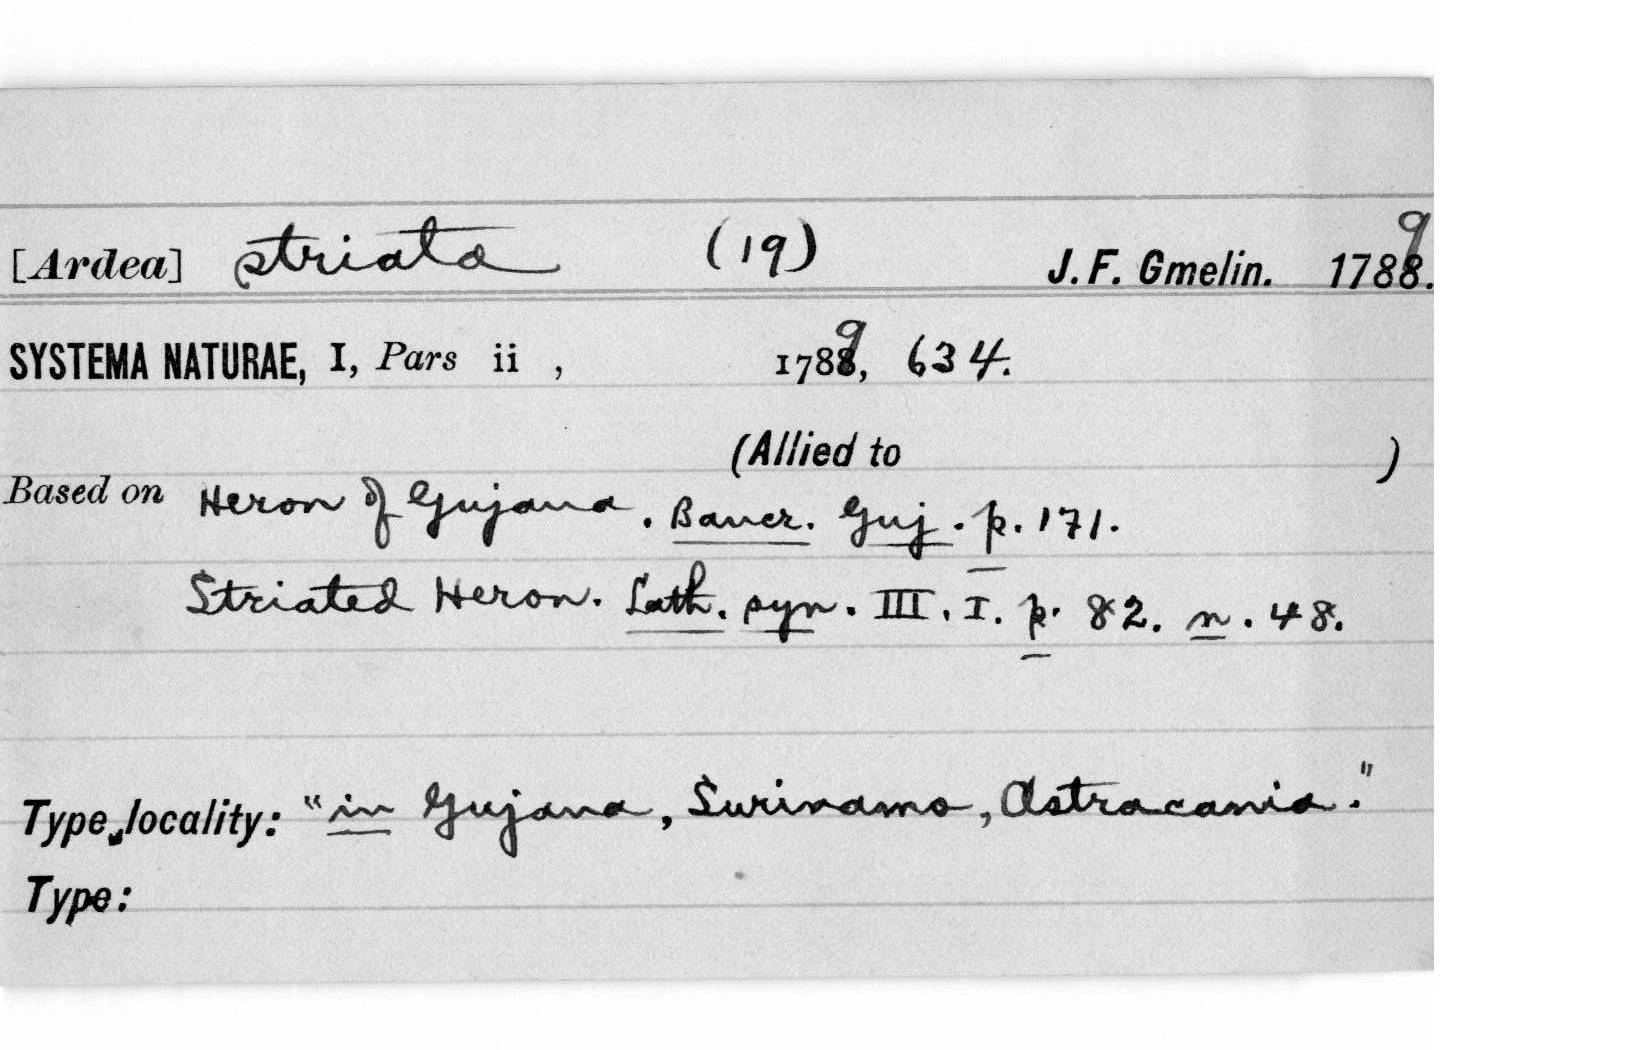 [Ardea] striata (19) J. F. Gmelin. 1789.
SYSTEMA NATURAE, I, Pars ii , 1789, 634.
(Allied to )
Based on Heron of Gujana. Bancr. Guj. p. 171.
Striated Heron. Lath. syn. III. I. p. 82. n. 48.
Type locality: "in Gujana, Surinamo, Astracania."
Type: